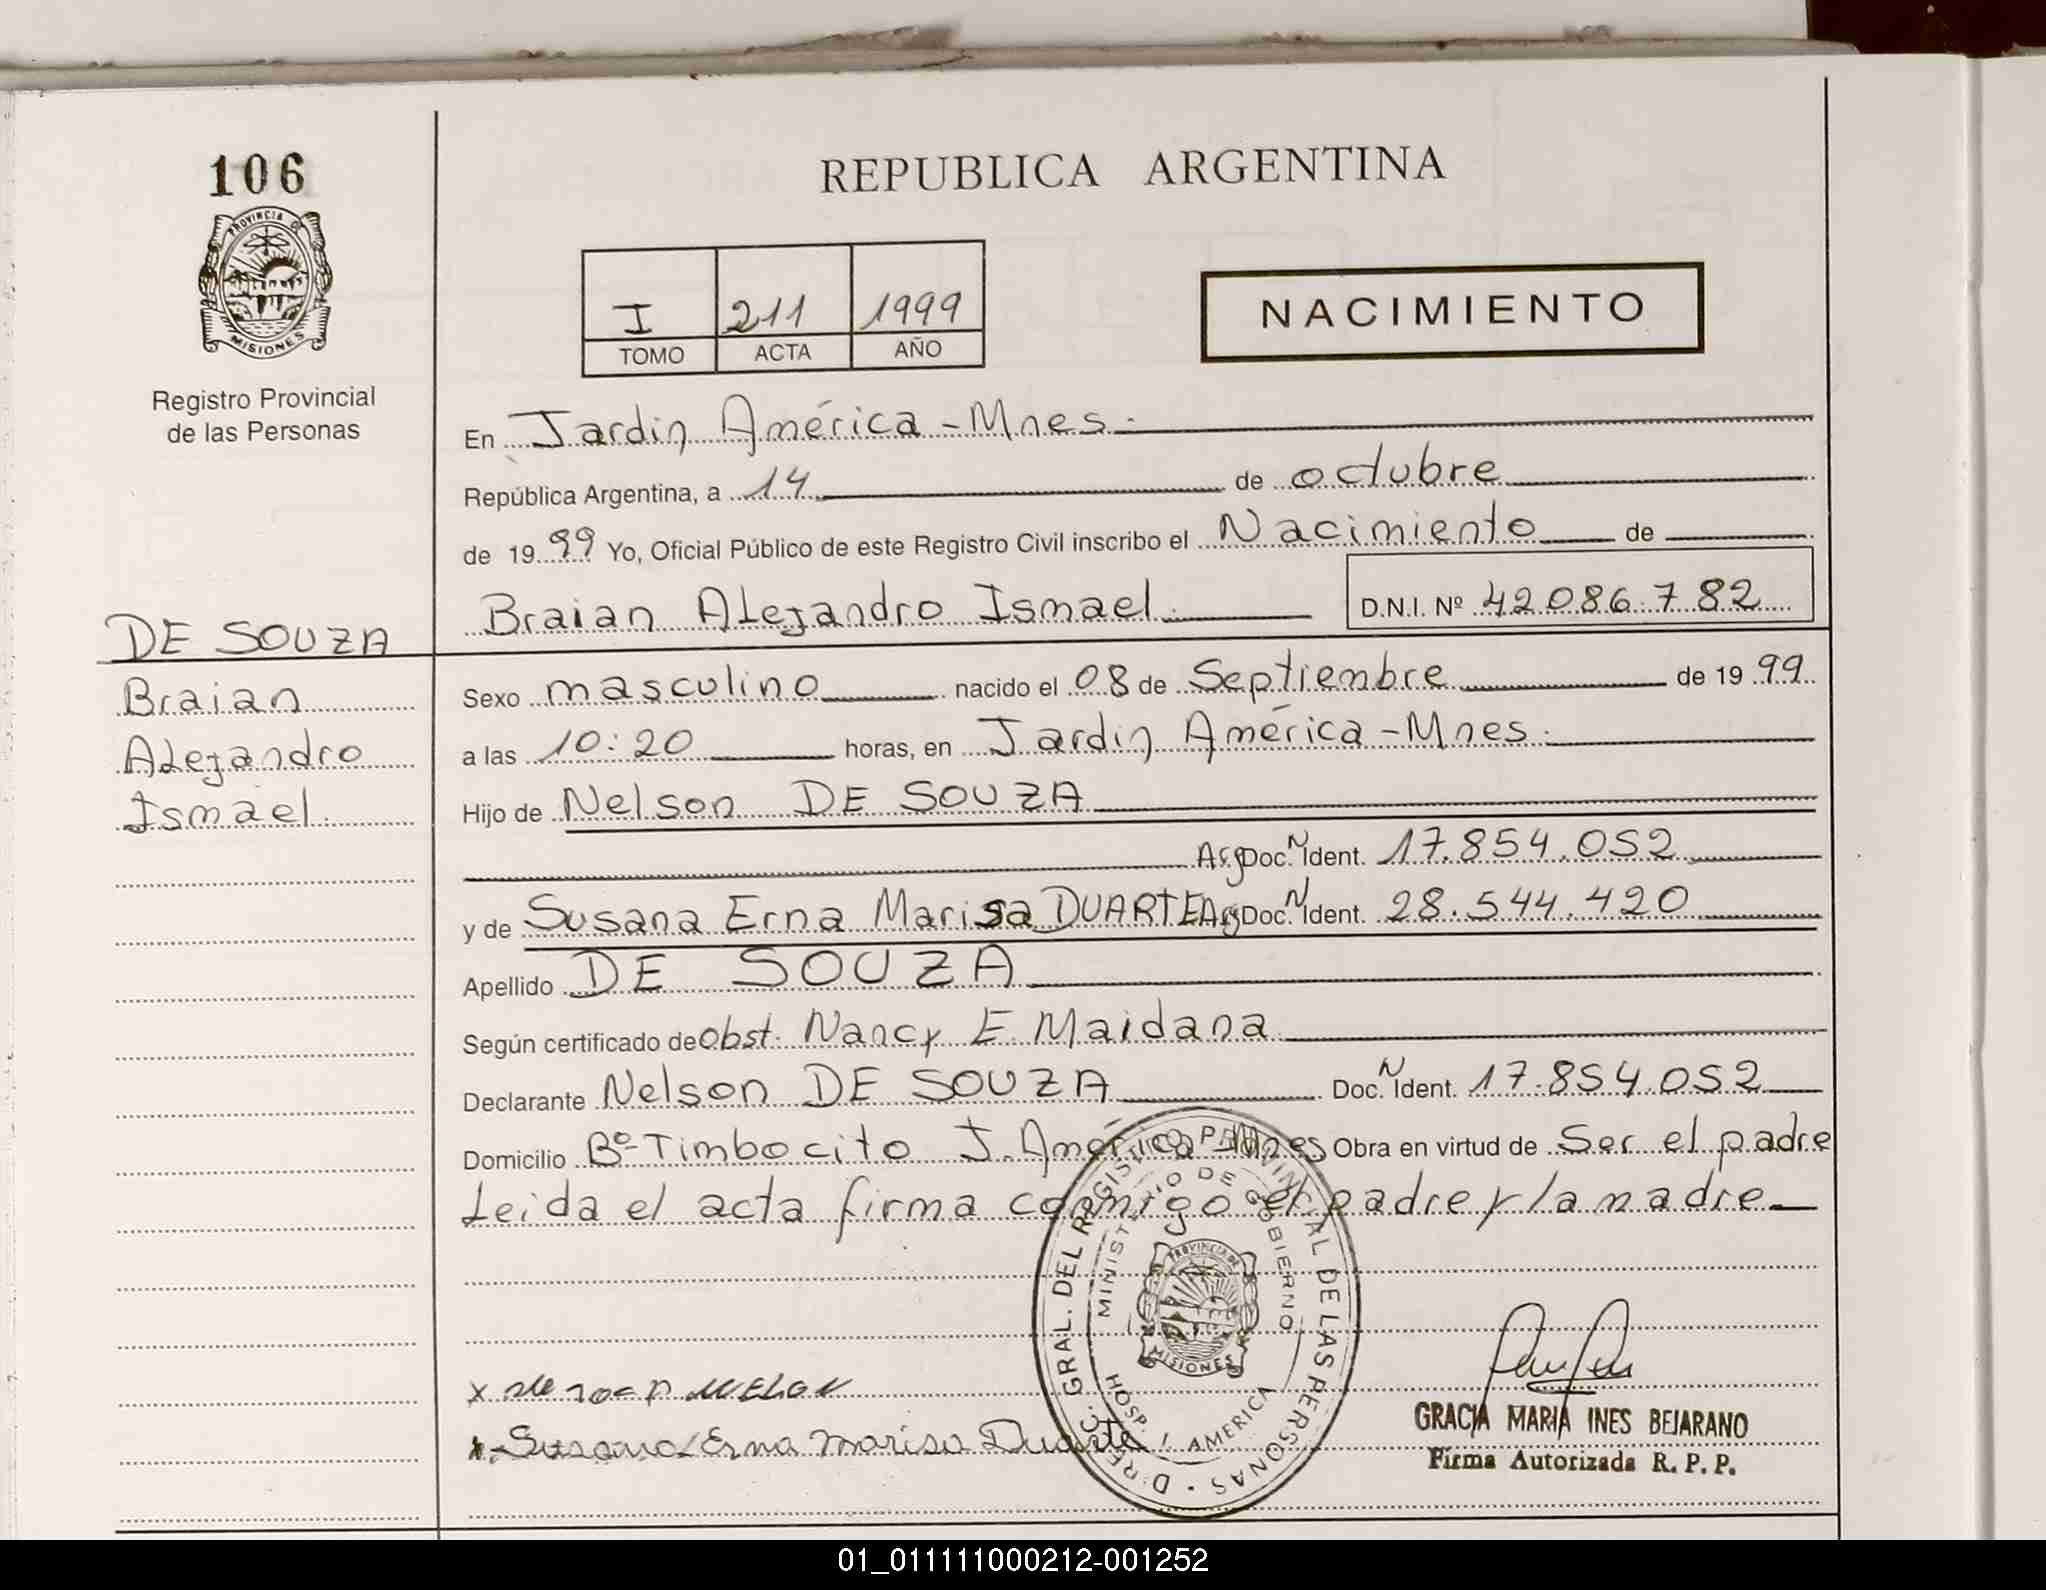 106
REPUBLICA ARGENTINA
PROVINCIA DE
MISIONES
I 211 1999
TOMO ACTA AÑO
NACIMIENTO
Registro Provincial
de las Personas
En Jardin América - Mnes.
República Argentina, a 14 de octubre
de 1999 Yo, Oficial Público de este Registro Civil inscribo el Nacimiento de
Braian Alejandro Ismael. D.N.I. Nº 42086782
DE SOUZA
Braian
Alejandro
Ismael.
Sexo masculino nacido el 08 de Septiembre de 1999
a las 10:20 horas, en Jardin América - Mnes.
Hijo de Nelson DE SOUZA
Arg Doc. N Ident. 17.854.052
y de Susana Erna Marisa DUARTE Arg Doc. N Ident. 28.544.420
Apellido DE SOUZA
Según certificado de Obst. Nancy E. Maidana
Declarante Nelson DE SOUZA Doc. N Ident. 17.854.052
Domicilio Bº Timbocito J. América - Mnes Obra en virtud de Ser el padre
Leida el acta firma conmigo el padre y la madre
DIREC. GRAL. DEL REGISTRO PROVINCIAL DE LAS PERSONAS
MINISTERIO DE GOBIERNO
PROVINCIA DE
MISIONES
HOSP. J. AMERICA
x
x Susana Erna Marisa Duarte
GRACIA MARIA INES BEJARANO
Firma Autorizada R. P. P.
01_011111000212-001252